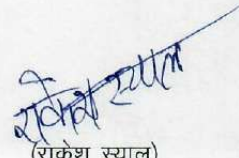 राकेश स्याल
(राकेश स्याल)